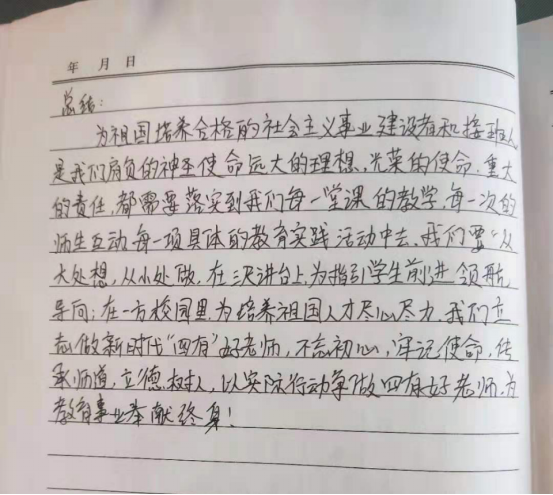 年 月 日
总结:
为祖国培养合格的社会主义事业建设者和接班人
是我们肩负的神圣使命远大的理想、光荣的使命、重大
的责任,都需要落实到我们每一堂课的教学、每一次的
师生互动每一项具体的教育实践活动中去,我们要"从
大处想,从小处做,在三尺讲台上,为指引学生前进领航,
导向;在一方校园里为培养祖国人才尽心尽力,我们立
志做新时代"四有"好老师,不忘初心,牢记使命,传
承师道,立德树人,以实际行动争做四有好老师,为
教育事业奉献终身!